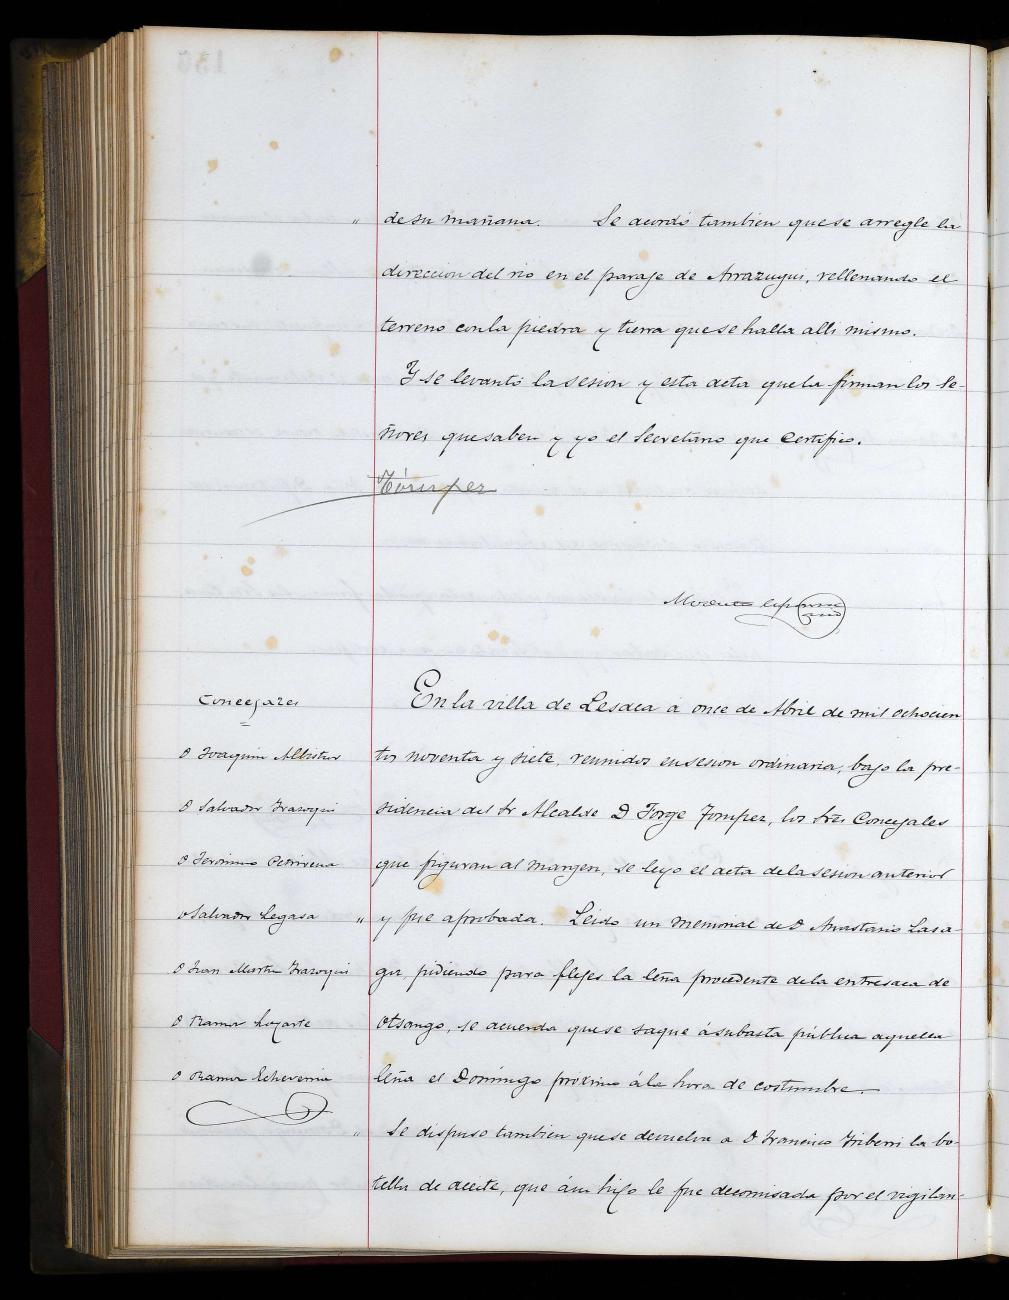 " de su mañana. Se acordó tambien que se arregle la
direccion del rio en el paraje de Arrazugui, rellenando el
terreno con la piedra y tierra que se halla alli mismo.
Y se levantó la sesion y esta acta que la firman los Se-
ñores que saben y yo el Secretario que certifico.
Concejales
D Joaquin Albistur
D Salvador Irazoqui
D Jeronimo Petrirena
D Salvador Legasa
D Juan Martin Irazoqui
D Ramon Loyarte
D Ramon Echeverria
En la villa de Lesaca á once de Abril de mil ochocien
tos noventa y siete, reunidos en sesion ordinaria, bajo la pre-
sidencia del Sr Alcalde D Jorge Tompez, los Srs Concejales
que figuran al margen, se leyo el acta de la sesion anterior
" y fue aprobada. Leido un memorial de D Anastasio Lasa-
ga, pidiendo para flejes la leña procedente de la entresaca de
Otsango, se acuerda que se saque á subasta pública aquella
leña el Domingo proximo á la hora de costumbre.
" Se dispuso tambien que se devuelva a D Francisco Iriberri la bo-
tella de aceite, que á su hijo le fue decomisada por el vigilan-